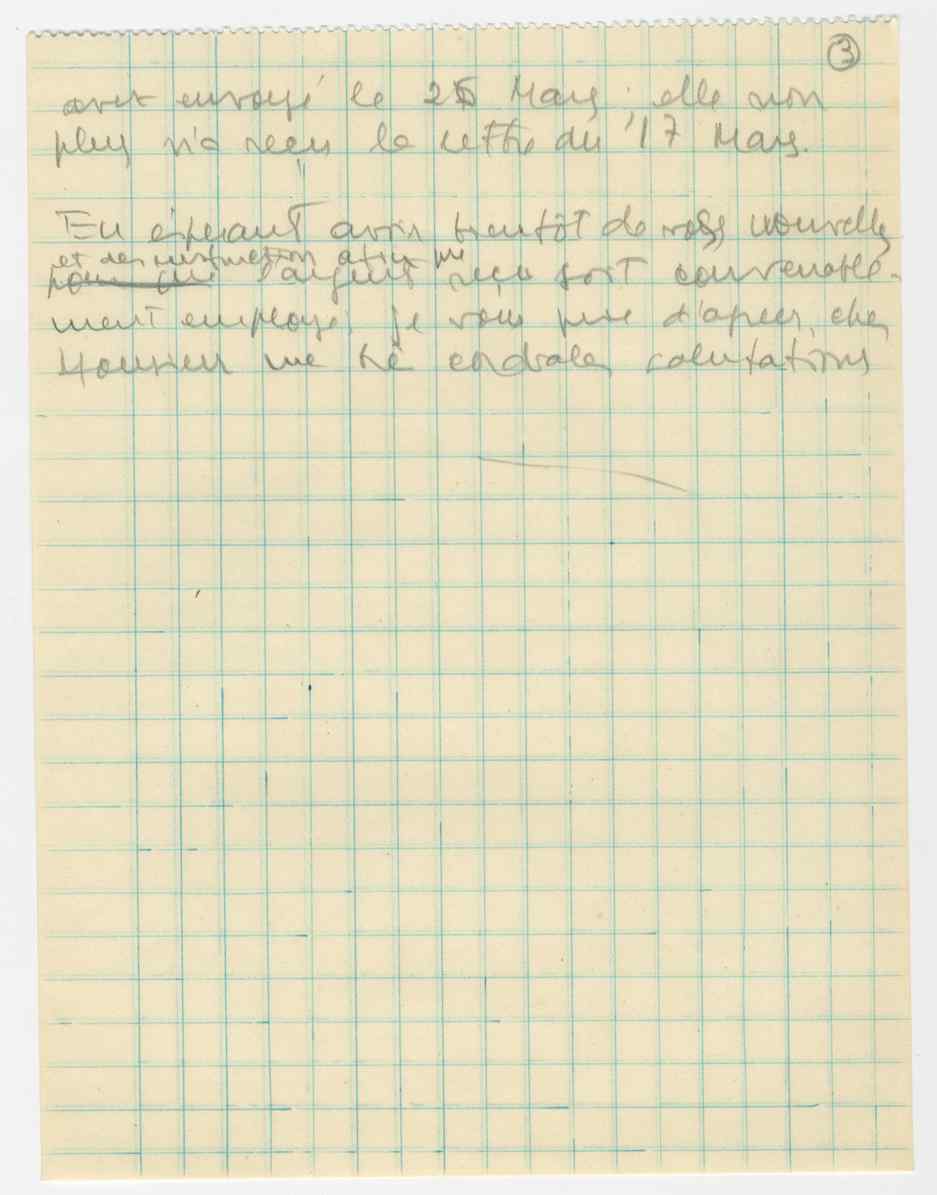 ③
avez envoyé le 25 Mars; elle non
plus n'a reçu la lettre du 17 Mars.
En espérant avoir bientôt de vos nouvelles
et des instruction afin que
pour que l'argent reçu soit convenable-
ment employé, je vous prie d'agréer, cher
Monsieur, me très cordiales salutations